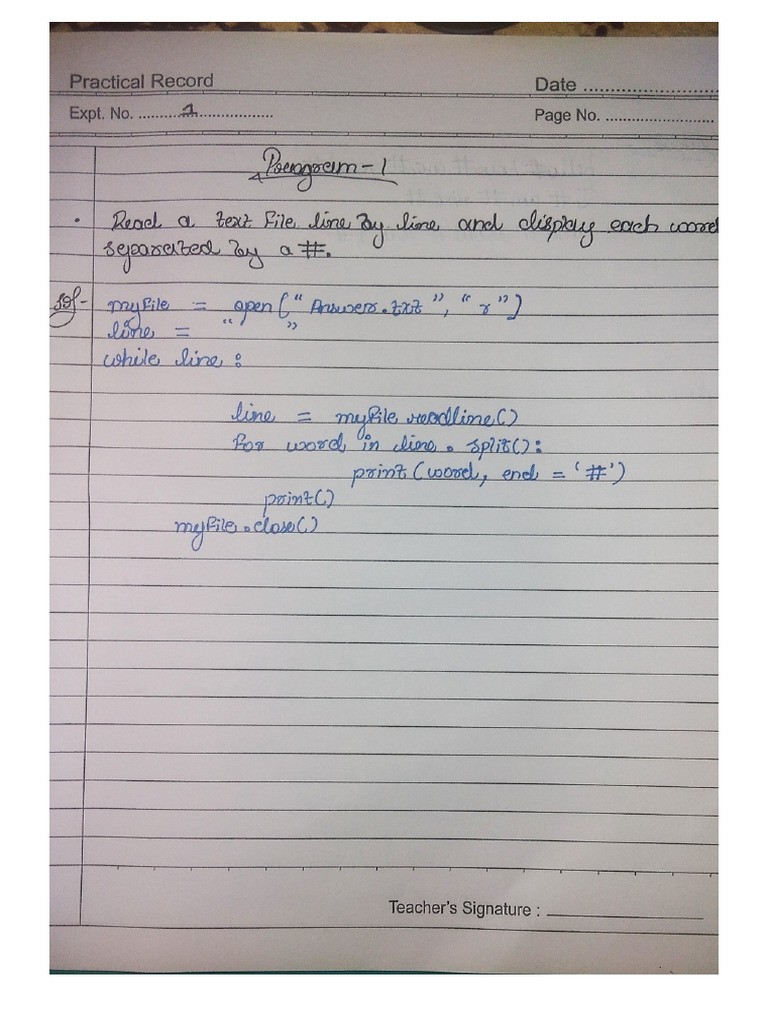 Practical Record
Date ........................
Expt. No. ..........1..................
Page No. ........................
Program - 1
• Read a text file line by line and display each word
separated by a #.
Sol -
myfile = open("Answers.txt", "r")
line = " "
while line :
line = myfile.readline()
for word in line. split():
print(word, end = '#')
print()
myfile.close()
Teacher's Signature : ________________